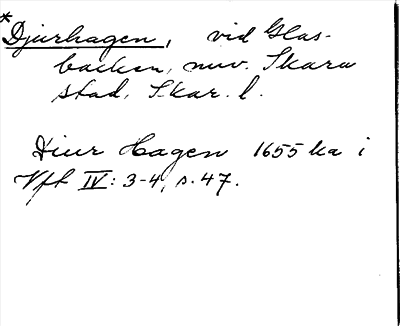 *Djurhagen, vid Glas-
backen, nuv. Skara
stad, Skar. l.
Diur Hagen 1655 ka i
Vft IV: 3-4, s. 47.